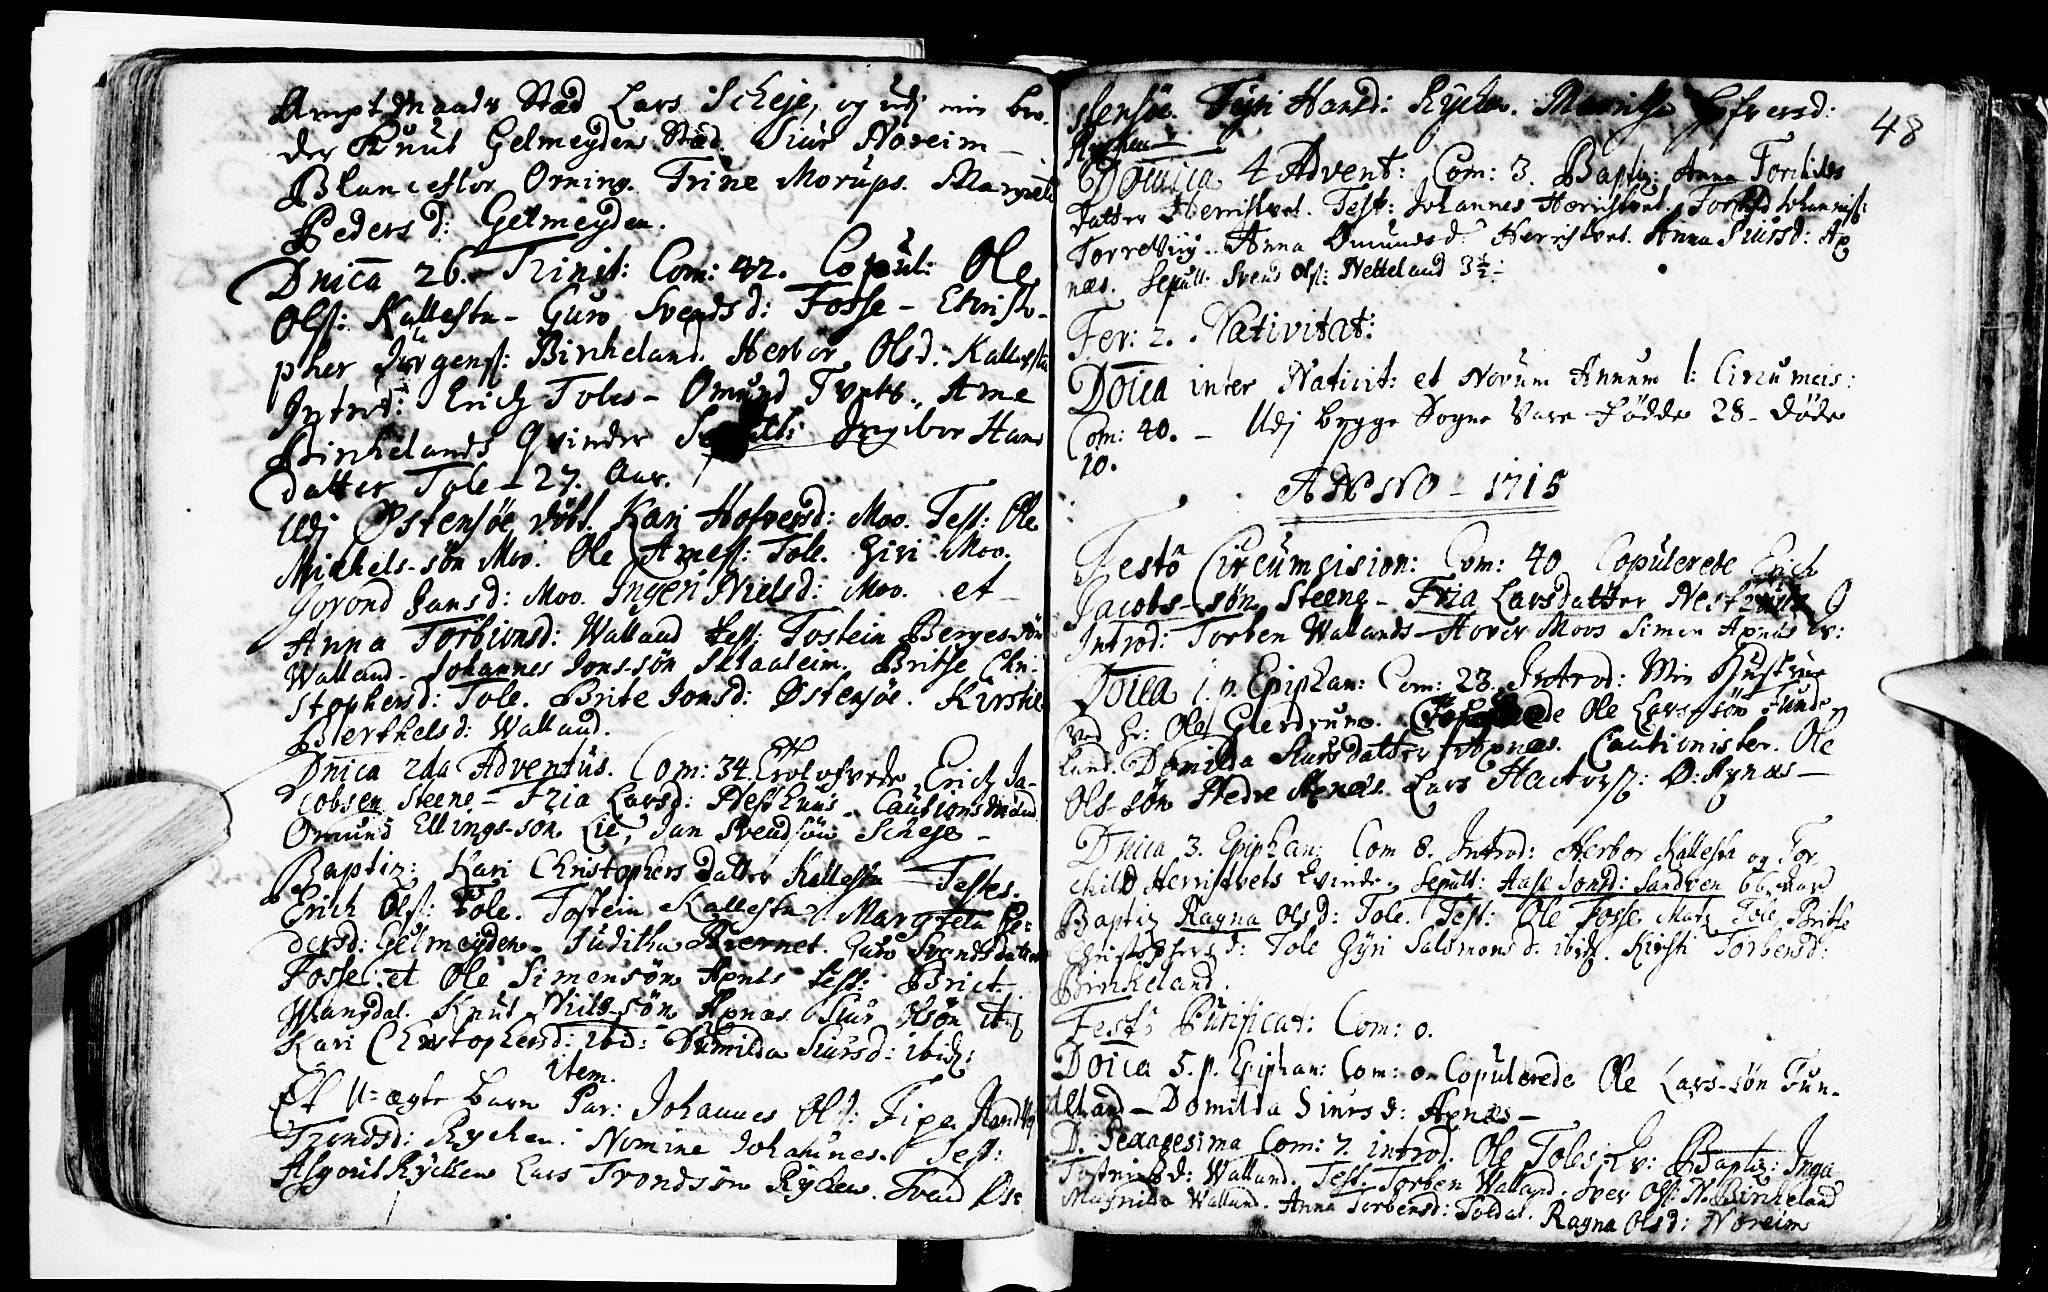 Ampt Mands Stæd Lars Scheje, og udj min bro-
der Knut Gelmeydens Stæd. Siur Noreim –
Blancestor Orning. Trine Morups. Margrete
Pedersd: Gelmeyden.
Dnica 26. Trinit: Com: 42. Copul: Ole
Ols: Kallestu – Guro Svendsd: Fosse – Christo-
pher Jürgens: Birkeland. Herbor Olsd: Kallestu
Introd: Erich Toles – Omund Tvets, Arne
Birkelands Qvinder Ingebor Hans
datter Tole – 27. Aar.
Udj Østensøe döbt. Kari Hofversd: Moo. Test: Ole
Michels-sön Moo. Ole Arness: Tole. Giri Moo.
Gorond Hansd: Moo. Ingeri Nielsd: Moo. et –
Anna Torbionsd: Walland test: Tostein Berges sön
Walland. Johannes Jons-sön Sklaaleim. Britse Chri-
stophersd: Tole. Brite Jonsd: Østensöe. Kirstie
Berthelsd: Walland.
Dnica 2da Adventus. Com: 34. Trolofvede Erich Ja-
cobsen Steene – Fria Larsd: Nesthuus. Cautionsmænd
Omund Ellings-sön Lie, Jan Svendsön Scheje –
Baptiz: Kari Christophers datter Kallestu – Testes.
Erich Ols: Tole. Tostein Kallestu. Margreta Pe-
dersd: Gelmeyden. Juditha Bernet. Guro Svendsdatter
Fosse. et Ole Simensön Apnes test: Brict.
Wangdal. Knut Nils-sön Apnæs Siur sön ibid
Kari Christophersd: ibid: Dømilda Siursd: ibid:
item.
Et U-ægte barn Par: Johannes Ols: Tipe
Trondsd: Rychen. Nomine Johannes. Test:
Asgout Rycken Lars Trondsön Rycken. Øs-
48
stensöe. Hansd: Rycken. Hofversd:
Rycken –
Doica 4 Advent: Com: 3. Baptiz: Anna Torchilds
datter Herristvet. Test: Johannes Herristvet. Johanniss:
Torreviig. Anna Omundsd: Herristvet. Anna Siursd: Ap
næs. Sepult: Svend Ols: Netteland 3½
Fer: 2. Nativitat:
Doica inter Nativit: et Novum Annum l: Circumcis:
Com: 40. – Udj begge Sogne Vare Fødde 28 – døde
10.
ANNO – 1715
Festo Circumcision: Com: 40 Copulerede Erich
Jacobs-sön Steene – Fria Larsdatter
Introd: Torben Wallands – Hover Moos Simen Apnes
Doica 1. p. Epiphan: Com: 23. Introd: Min Hustrue
ved Hr: Ole Gierdrum. Ole Lars-sön Funde-
land. Domilda Siursdatter Apnæs. Cautionister. Ole
Ols-sön Nedre Apnæs. Lars Hactors: Ø: Apnæs –
Dnica 3. Epiphan: Com 8. Introd: Herbor Kallestu og Tor
child Herristvets Qvinde. Sepult: Aase Jonsd: Sandven 66 Aar
Baptiz Ragna Olsd: Tole. Test: Ole Fosse. Matz Tole, Brithe
Christophersd: Tole Gyri Salomonsd: ibid. Kirsti Torbensd:
Birkeland.
Festo Purificat: Com: 0.
Doica 5. p. Epiphan: Com: 0. Copulerede Ole Lars-sön Fun-
deland – Domilda Siursd: Apnæs –
D. Sexagesima Com: 7. introd. Ole Toles Baptiz: Inga
Tosteinsd: Walland. Test: Torben Walland. Ols: N. Birkeland
Magnilda Walland. Anna Torbensd: Toldal. Ragna Olsd: Noreim